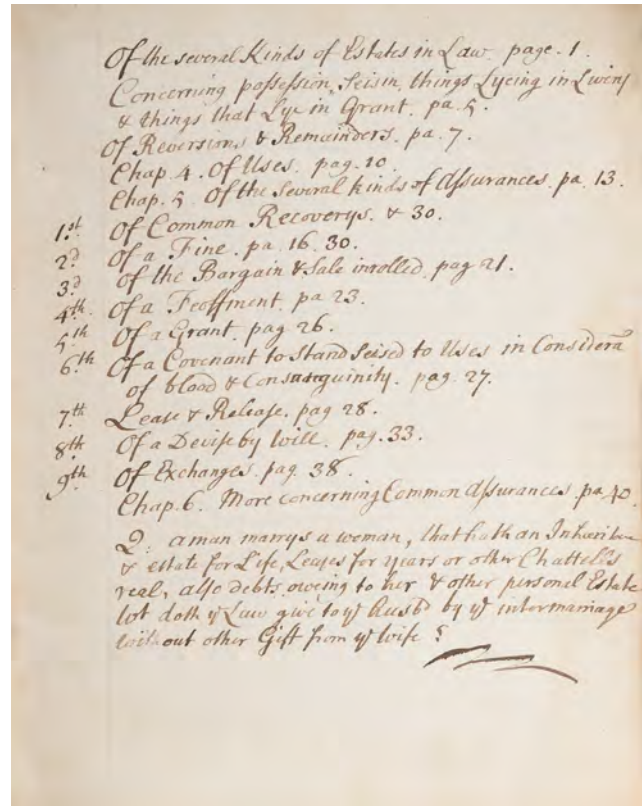 Of the several Kinds of Estates in Law. page. 1.
Concerning possession, Seisin, things Lyeing in Livery
& things that Lye in Grant. pa. 5.
Of Reversions & Remainders. pa. 7.
Chap. 4. Of Uses. pag. 10.
Chap. 5. Of the Several kinds of Assurances. pa. 13.
1.st Of Common Recoverys. & 30.
2.d Of a Fine. pa. 16. 30.
3.d of the Bargain & Sale inrolled. pag 21.
4.th Of a Feoffment. pa 23.
5.th Of a Grant. pag 26.
6.th Of a Covenant to Stand Seised to Uses in Considera
of blood & Consanguinity. pag. 27.
7.th Lease & Release. pag 28.
8th Of a Devise by Will. pag. 33.
9th Of Exchanges. pag. 38.
Chap. 6. More concerning Common Assurances. pa 40.
Q. a man marrys a woman, that hath an Inheritance
& estate for Life, Leases for years or other Chattells
real, also debts owing to her & other personal Estate
wt doth ye Law give to ye Husbd by ye intermarriage
without other Gift from ye Wife?